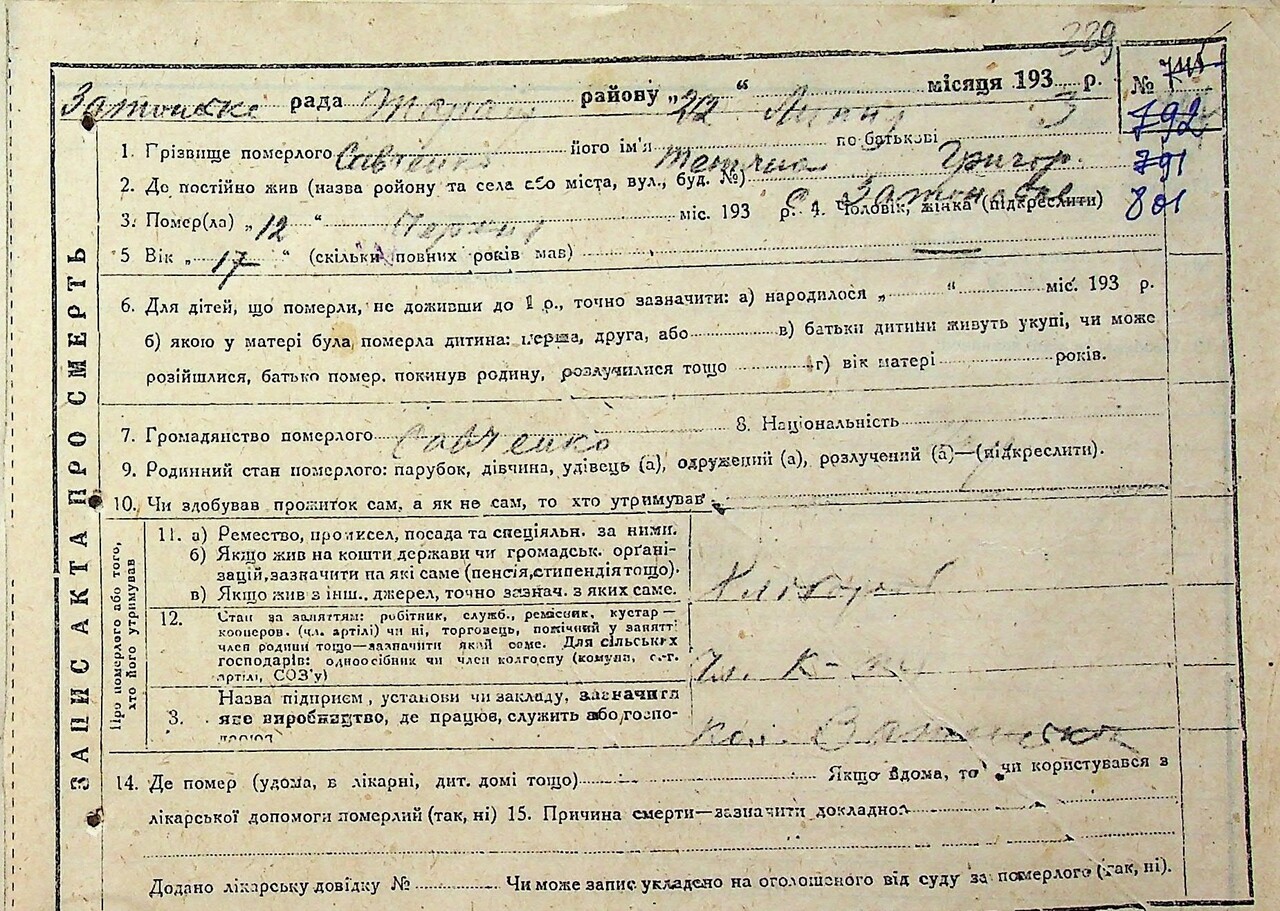 329
рада району „22 “ місяця 193 3 р. №
792
791
801
1. Грізвище померлого Савченко його ім'я Тетяна по батькові Григор.
2. Де постійно жив (назва району та села або міста, вул., буд. №) с.
3. Помер(ла) „12 “ міс. 193 р. 4. Чоловік, жінка (підкреслити)
5 Вік „ 17 “ (скільки повних років мав)
6. Для дітей, що померли, не доживши до 1 р., точно зазначити: а) народилося „ “ міс. 193 р.
б) якою у матері була померла дитина: перша, друга, або в) батьки дитини живуть укупі, чи може
розійшлися, батько помер. покинув родину, розлучилися тощо г) вік матері років.
7. Громадянство померлого Савченко 8. Національність
9. Родинний стан померлого: парубок, дівчина, удівець (а), одружений (а), розлучений (а)—(підкреслити).
10. Чи здобував прожиток сам, а як не сам, то хто утримував
ЗАПИС АКТА ПРО СМЕРТЬ
Про померлого або того,
хто його утримував
11. а) Ремество, промисел, посада та спеціяльн. за ними.
б) Якщо жив на кошти держави чи громадськ. орґані-
зацій, зазначити на які саме (пенсія, стипендія тощо).
в) Якщо жив з інш. джерел, точно зазнач. з яких саме.
12. Стан за заняттям: робітник, служб., ремісник, кустар—
кооперов. (чл. артілі) чи ні, торговець, помічний у занятті
член родини тощо—зазначити який саме. Для сільських
господарів: одноосібник чи член колгоспу (комуна, с.-г.
артілі, СОЗ'у)
3. Назва підприєм, установи чи закладу, зазначити
яке виробництво, де працює, служить або госпо-
14. Де помер (удома, в лікарні, дит. домі тощо) Якщо вдома, то чи користувався з
лікарської допомоги померлий (так, ні) 15. Причина смерти—зазначити докладно
Додано лікарську довідку № Чи може запис укладено на оголошеного від суду за померлого (так, ні).